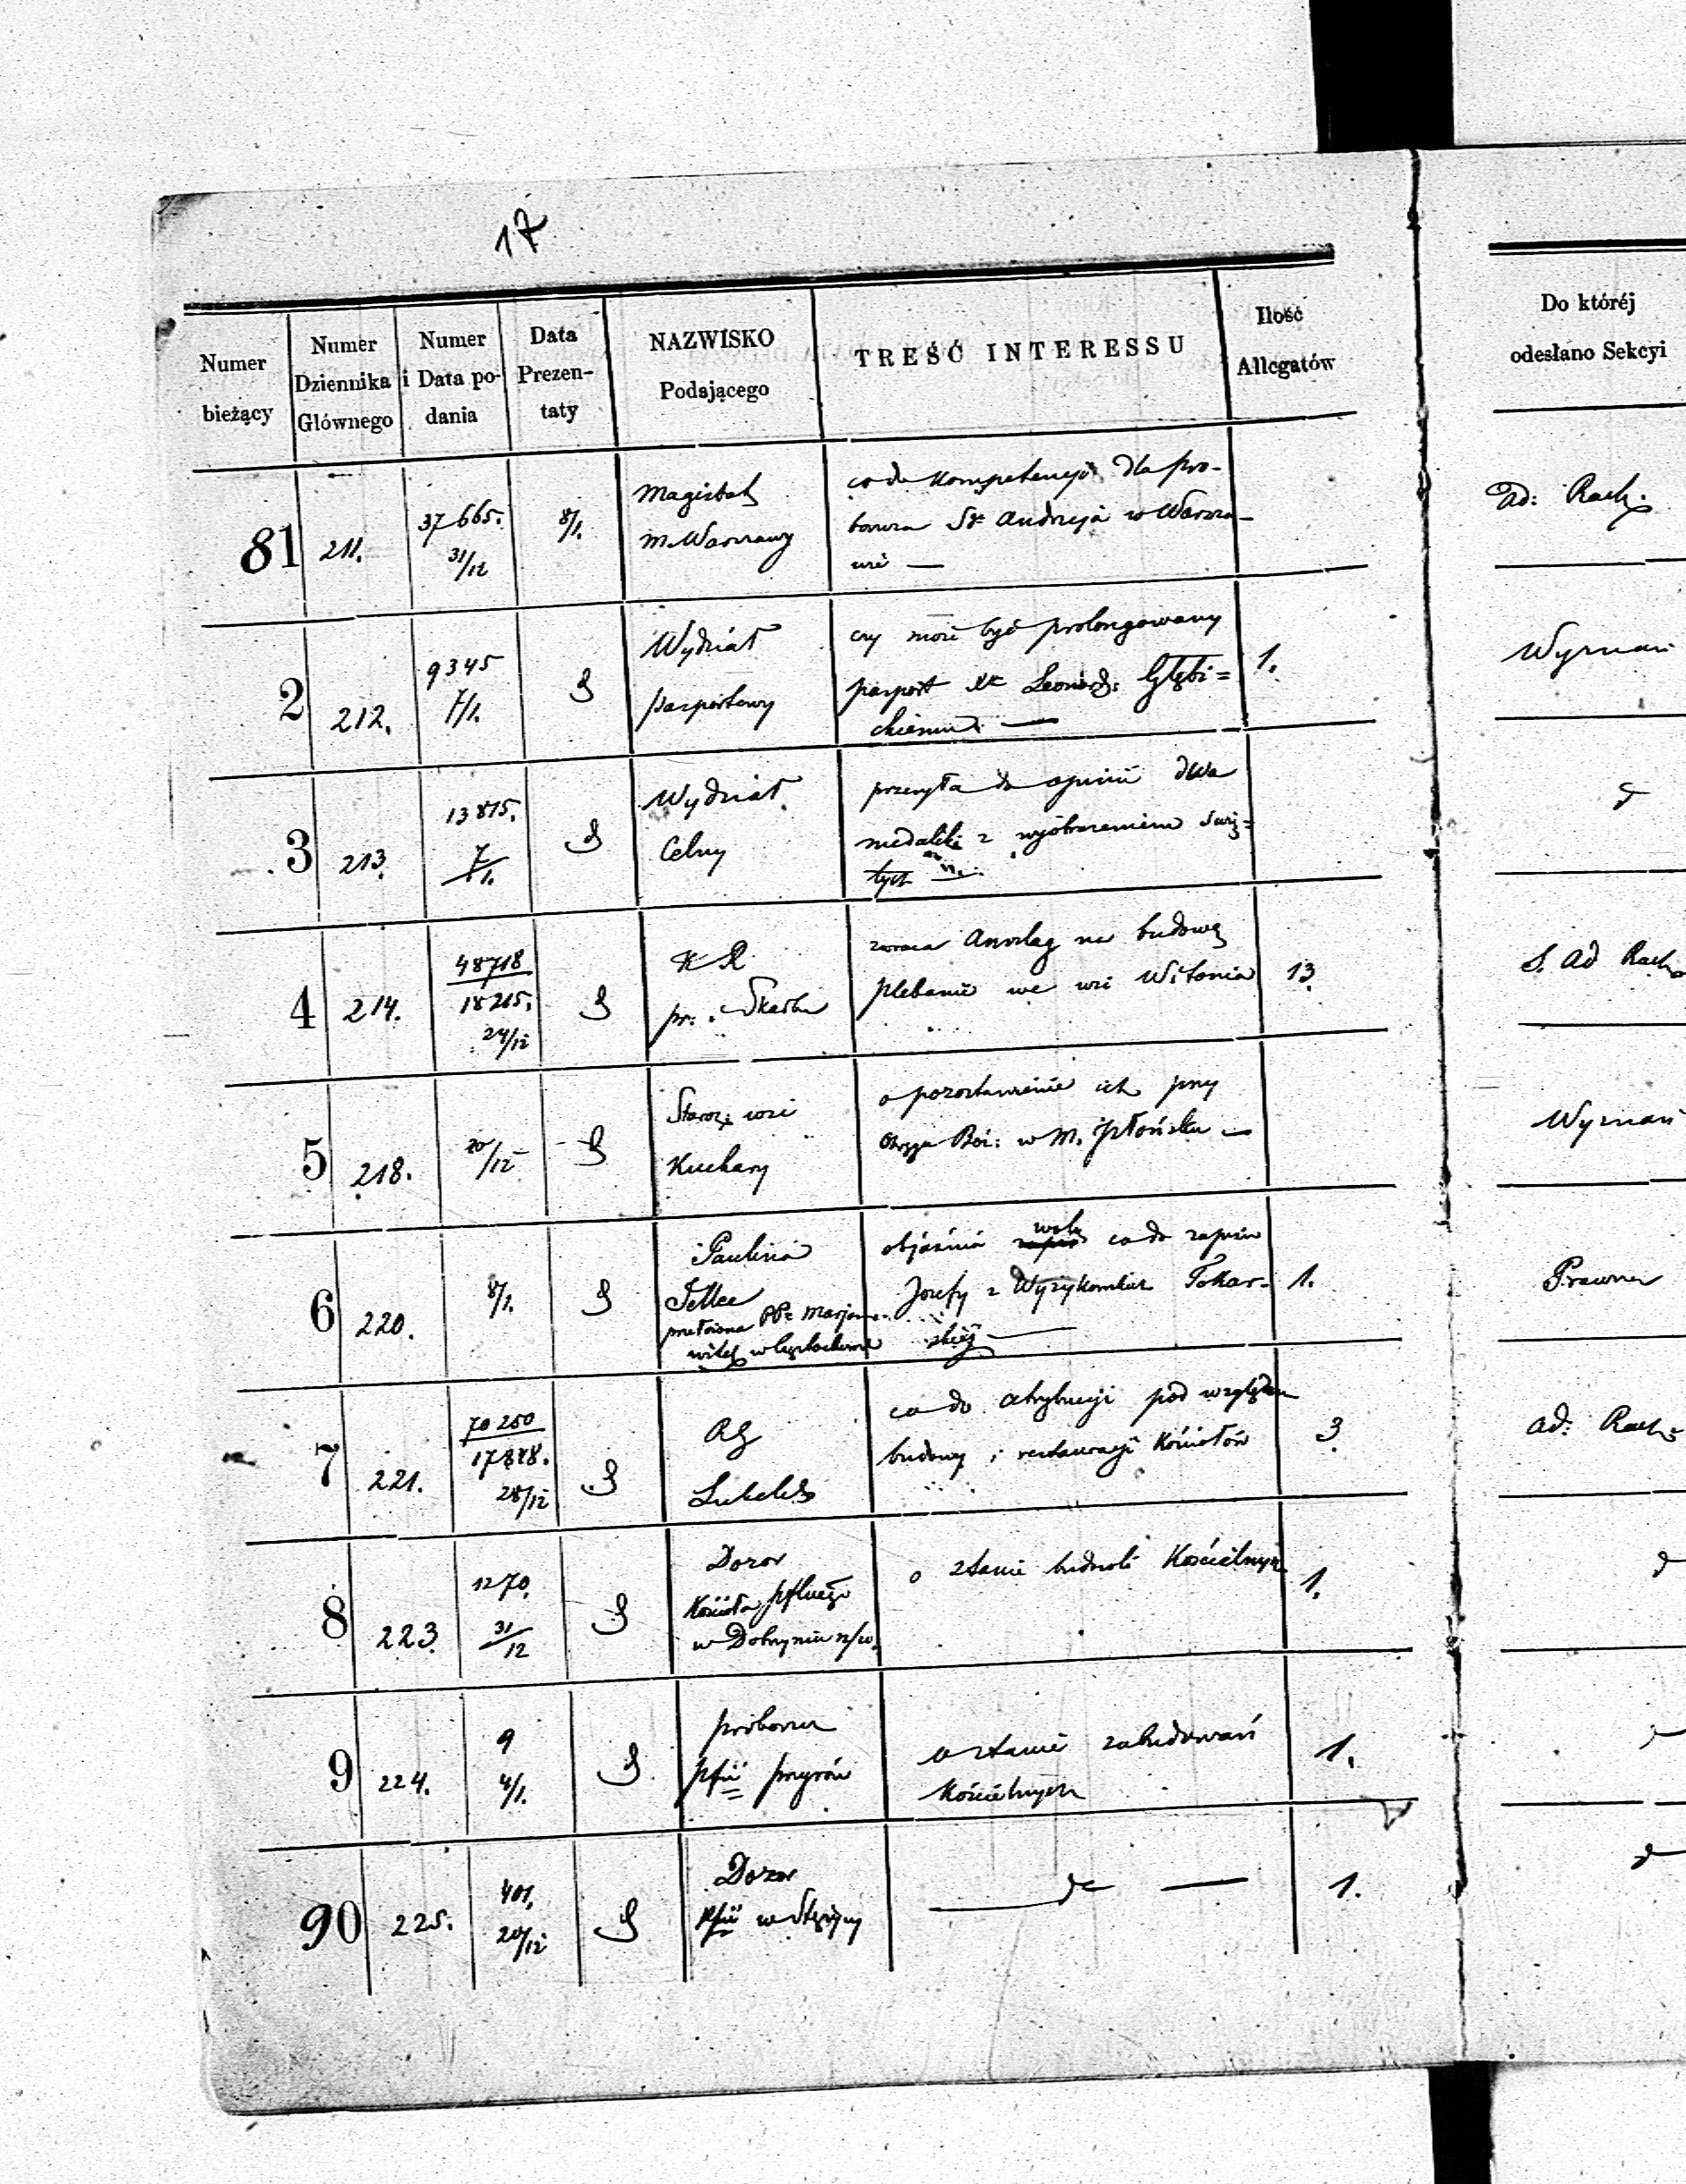 17
Numer bieżący
Numer Dziennika Głównego
Numer i Data podania
Data Prezentaty
NAZWISKO Podającego
TREŚĆ INTERESSU
Ilość Allegatów
Do któréj odesłano Sekcyi
81 211. 37665. 31/12 8/1.
Magistrat
m. Warszawy
co do kompetencyi dla pro-
boszcza Sgo Andrzeja w Warsza-
wie —
Ad: Rach:
2 212. 9345 7/1.
Wydział
paszportowy
czy może być prolongowany
paszport Leonard: Głębi=
ckiemu —
1.
Wyznań
3 213. 13815. 7/1.
Wydział
Celny
przesyła do opinii dwa
medaliki z wyobrażeniem świę=
tych
4 214. 48718 18215. 24/12
K R
pr. Skarbu
zwraca Anszlag na budowę
plebanii we wsi Witonia
13.
S. Ad Rach
5 218. 20/12
Staroz: wsi
Kuchary
o pozostawienie ich przy
Okręgu Boż: w M. Płońsku —
Wyznań
6 220. 8/1.
Paulina
przełożona PP. Marjawitek w Częstochowie
objaśnia co do zapisu
Józefy z Wyrzykowskich Tokar-
skiej —
1.
Prawna
7 221. 70250 28/12
RG
Lubels
co do atrybucyi pod względem
budowy i restauracyi Kościołów
3
Ad: Rach:
8 223. 1270. 31/12
Dozor
Kościoła pflnego
w Dobrzyniu n/w.
o stanie budowli Kościelnych
1.
9 224. 9 4/1.
proboszcz
pfii Przyrów
o stanie zabudowań
Kościelnych
1.
90 225. 401. 20/12
Dozor
pfii w Stężycy
— —
1.